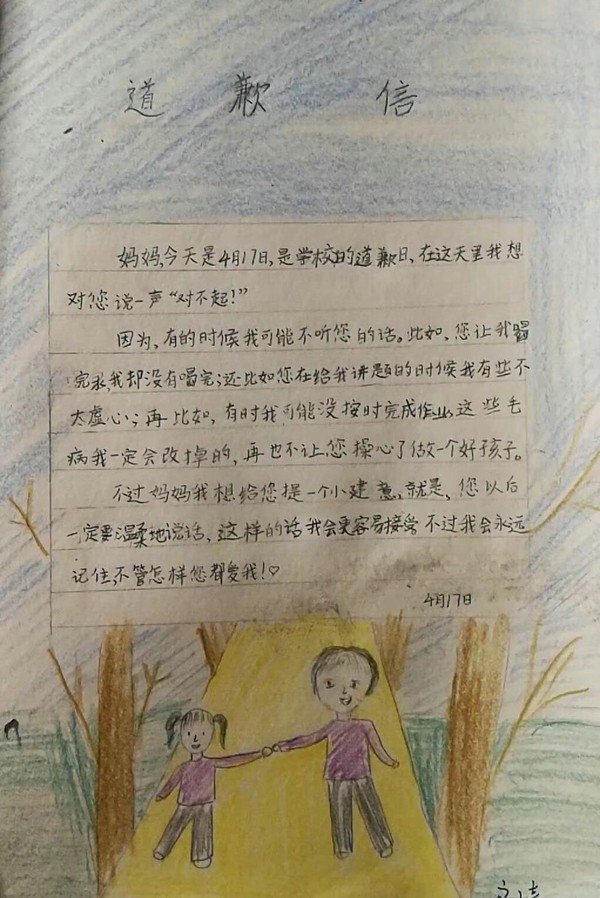 道歉信
妈妈,今天是4月17日,是学校的道歉日,在这天里我想
对您说一声“对不起!”
因为,有的时候我可能不听您的话。比如,您让我喝
完水,我却没有喝完;还比如您在给我讲题的时候我有些不
太虚心;再比如,有时我可能没按时完成作业,这些毛
病我一定会改掉的,再也不让您操心了做一个好孩子。
不过妈妈我想给您提一个小建意,就是,您以后
一定要温柔地说话,这样的话我会更容易接受不过我会永远
记住,不管怎样您都爱我!♡
4月17日